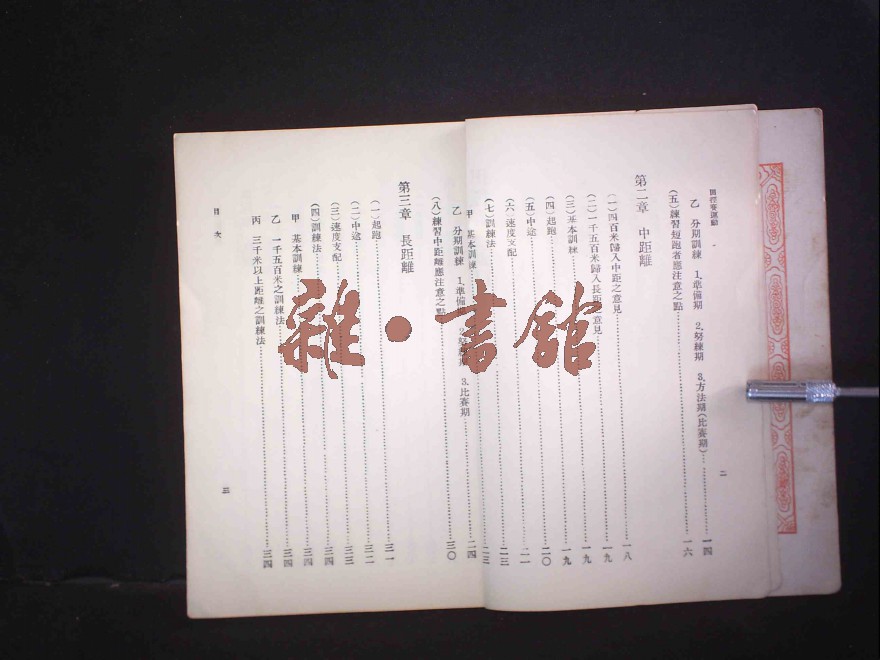 田徑賽運動
二
乙　分期訓練　1.準備期　2.努練期　3.方法期(比賽期)……一四
(五)練習短跑者應注意之點……一六
第二章　中距離
(一)四百米歸入中距之意見……一八
(二)一千五百米歸入長距之意見……一九
(三)基本訓練……一九
(四)起跑……二〇
(五)中途……二一
(六)速度支配……二三
(七)訓練法……二三
甲　基本訓練……二四
乙　分期訓練　1.準備期　2.努練期　3.比賽期
(八)練習中距離應注意之點……三〇
第三章　長距離
(一)起跑……三一
(二)中途……三二
(三)速度支配……三三
(四)訓練法……三四
甲　基本訓練……三四
乙　一千五百米之訓練法……三四
丙　三千米以上距離之訓練法……三四
目次
三
雜·書館